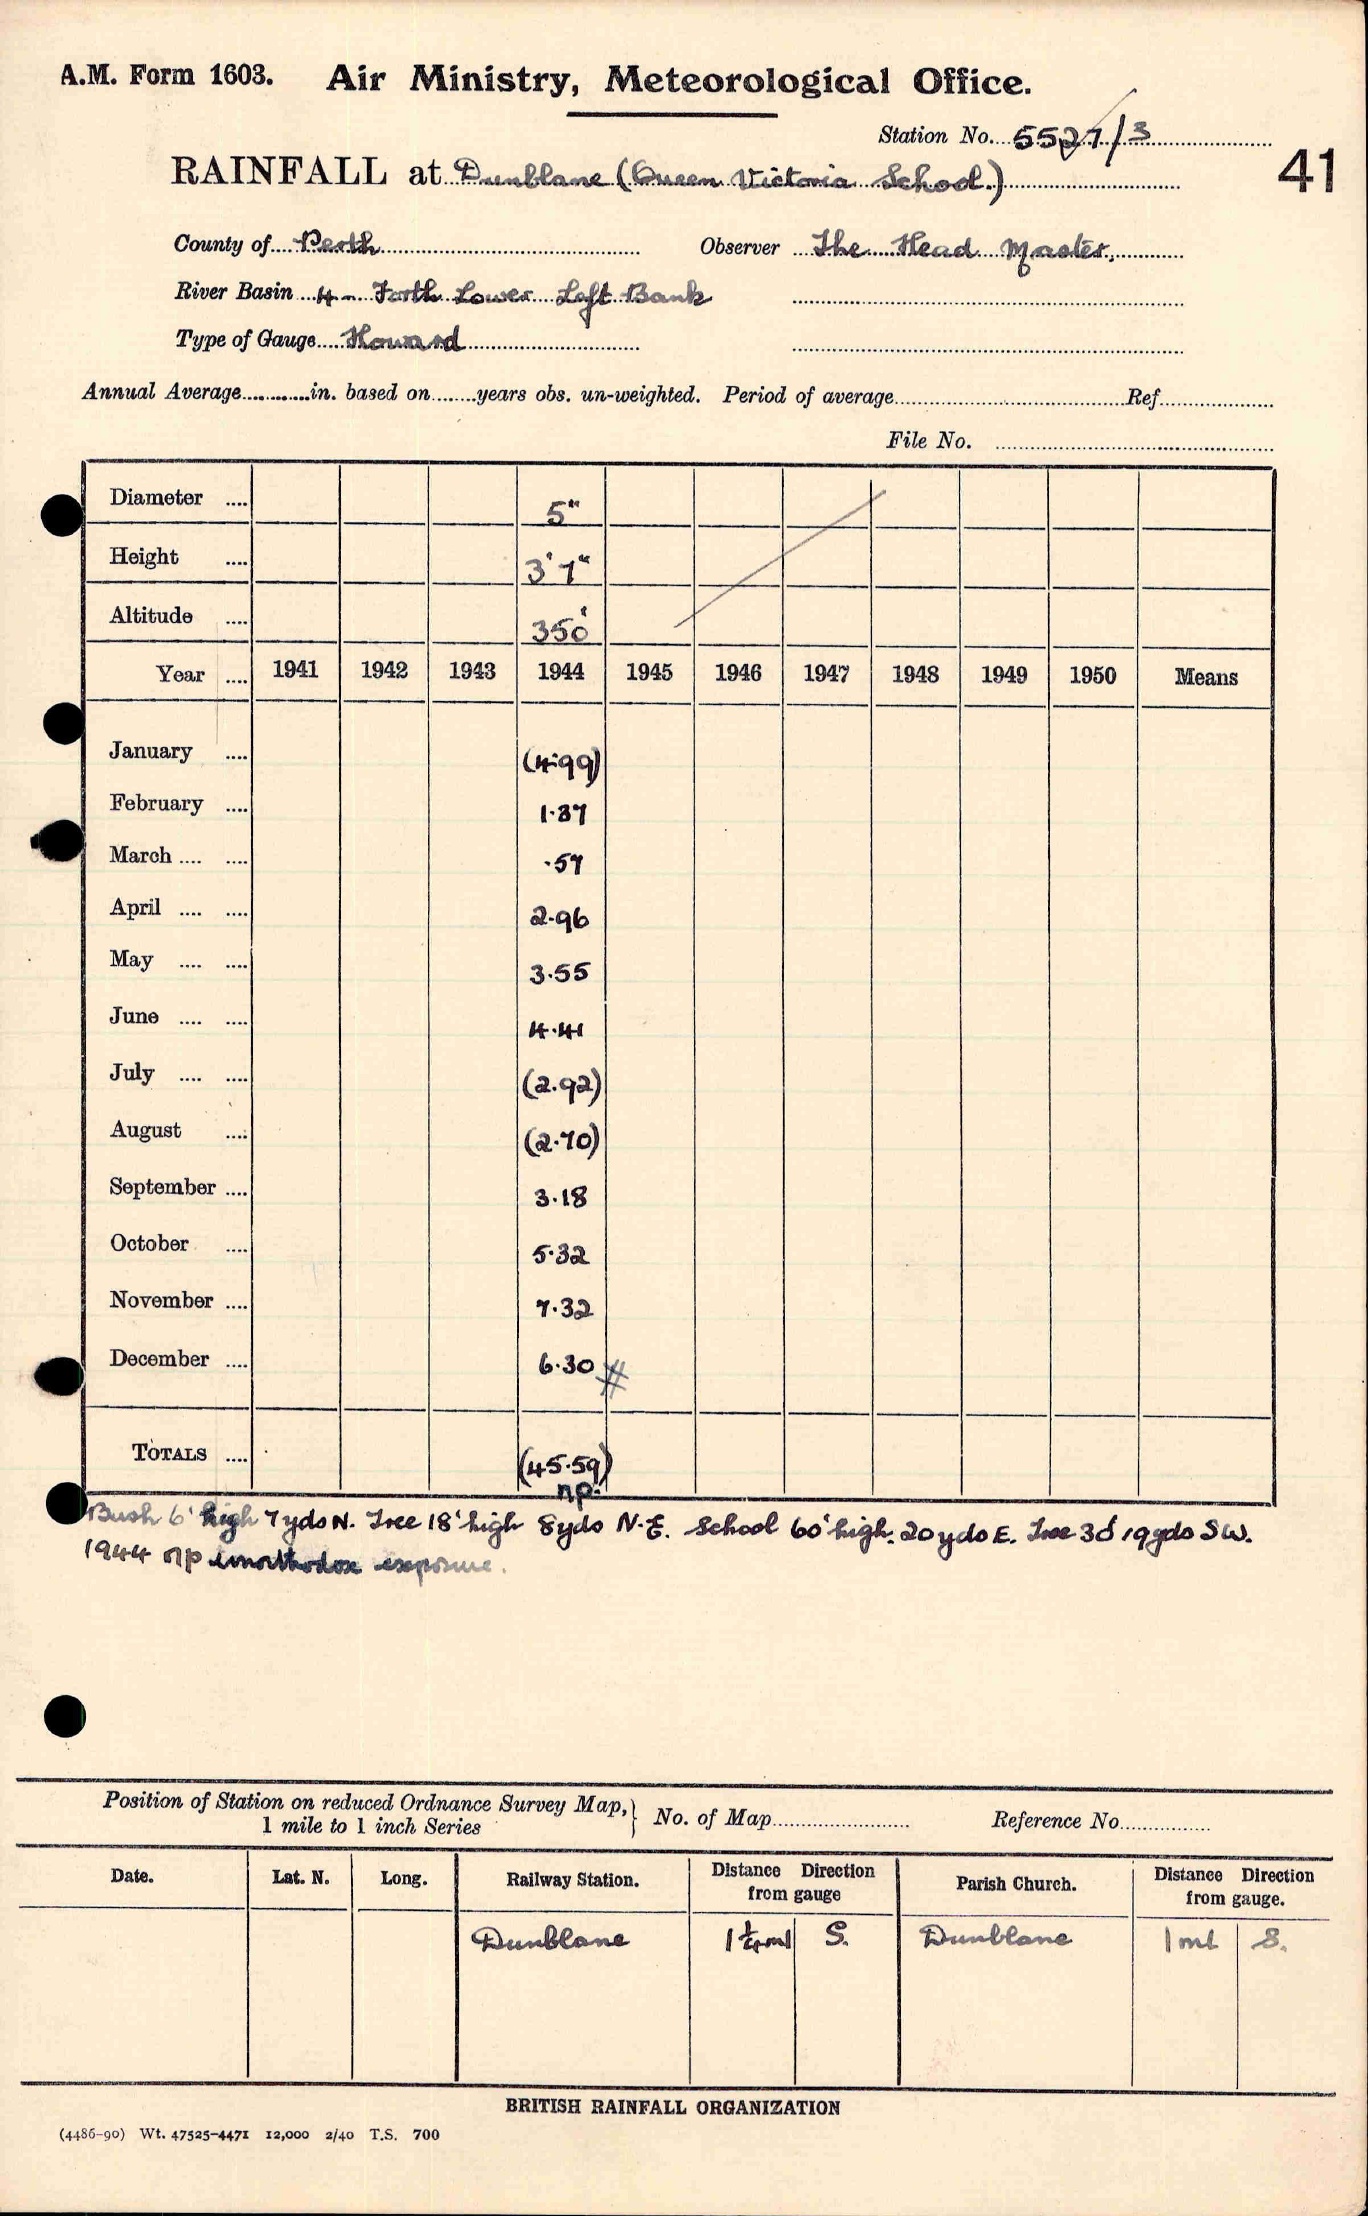 A.M. Form 1603. Air Ministry, Meteorological Office.
Station No. 5527/3
41
RAINFALL at Dunblane (Queen Victoria School.)
County of Perth Observer The Head Master.
River Basin 4 - Forth Lower Left Bank
Type of Gauge Howard
Annual Average in. based on years obs. un-weighted. Period of average Ref
File No.
Diameter 5"
Height 3' 7"
Altitude 350'
Year 1941 1942 1943 1944 1945 1946 1947 1948 1949 1950 Means
January (4.99)
February 1.37
March .57
April 2.96
May 3.55
June 4.41
July (2.92)
August (2.70)
September 3.18
October 5.32
November 7.32
December 6.30 #
TOTALS (45.59)
np.
Bush 6' high 7yds N. Tree 18' high 8yds N.E. School 60' high. 20yds E. Tree 30' 19yds SW.
1944 np unorthodox exposure.
Position of Station on reduced Ordnance Survey Map, 1 mile to 1 inch Series } No. of Map Reference No.
Date. Lat. N. Long. Railway Station. Distance Direction from gauge Parish Church. Distance Direction from gauge.
Dunblane 1¼ml S. Dunblane 1ml S.
BRITISH RAINFALL ORGANIZATION
(4486-90) Wt. 47525-4471 12,000 2/40 T.S. 700